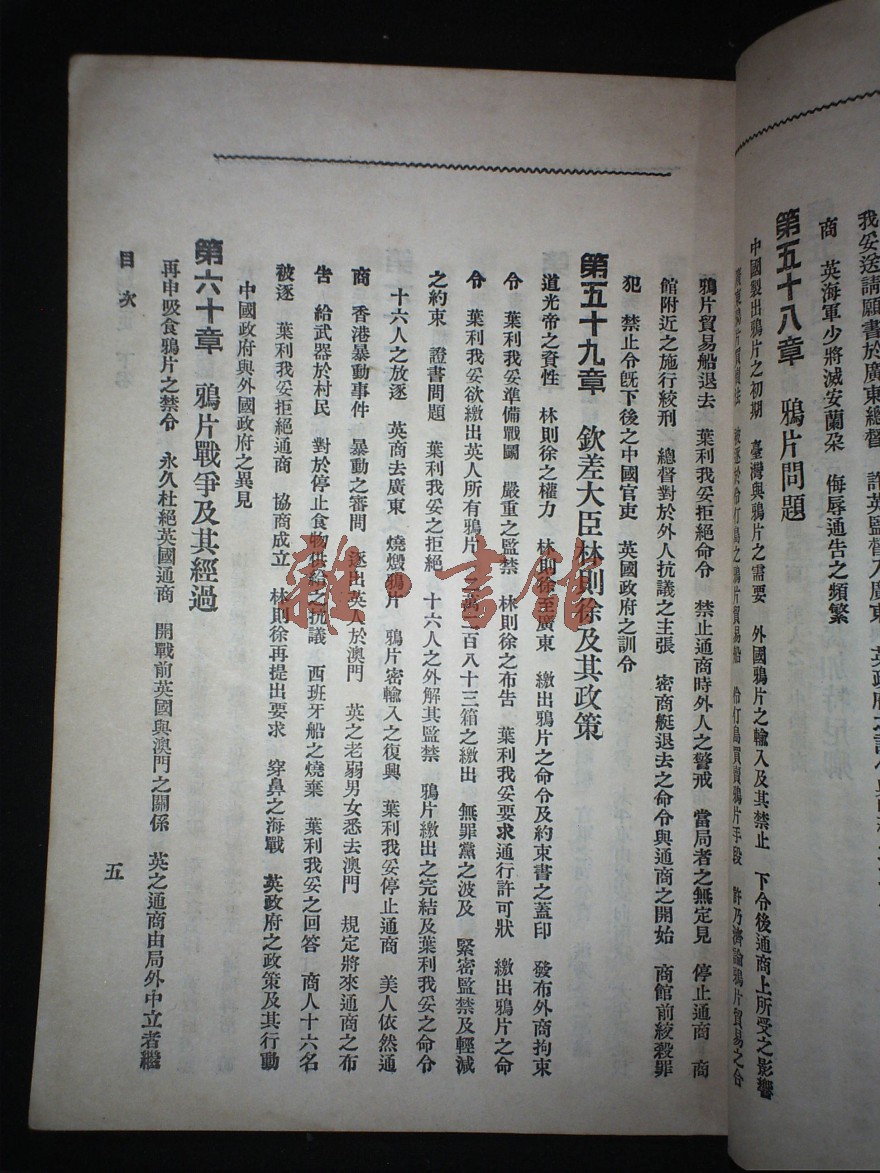 我妥送請願書於廣東總督
商　英海軍少將滅安蘭朶　侮辱通告之頻繁
第五十八章　鴉片問題
中國製出鴉片之初期　臺灣與鴉片之需要　外國鴉片之輸入及其禁止　下令後通商上所受之影響
被逐於伶仃島之鴉片貿易船　伶仃島買賣鴉片手段　許乃濟論鴉片貿易之合
鴉片貿易船退去　葉利我妥拒絕命令　禁止通商時外人之警戒　當局者之無定見　停止通商　商
館附近之施行絞刑　總督對於外人抗議之主張　密商艇退去之命令與通商之開始　商館前絞殺罪
犯　禁止令旣下後之中國官吏　英國政府之訓令
第五十九章　欽差大臣林則徐及其政策
道光帝之資性　林則徐之權力　林則徐至廣東　繳出鴉片之命令及約束書之蓋印　發布外商拘束
令　葉利我妥準備戰鬭　嚴重之監禁　林則徐之布告　葉利我妥要求通行許可狀　繳出鴉片之命
令　葉利我妥欲繳出英人所有鴉片　二萬二百八十三箱之繳出　無罪黨之波及　緊密監禁及輕減
之約束　證書問題　葉利我妥之拒絕　十六人之外解其監禁　鴉片繳出之完結及葉利我妥之命令
十六人之放逐　英商去廣東　燒燬鴉片　鴉片密輸入之復興　葉利我妥停止通商　美人依然通
商　香港暴動事件　暴動之審問　逐出英人於澳門　英之老弱男女悉去澳門　規定將來通商之布
告　給武器於村民　對於停止食物供給之抗議　西班牙船之燒棄　葉利我妥之回答　商人十六名
被逐　葉利我妥拒絕通商　協商成立　林則徐再提出要求　穿鼻之海戰　英政府之政策及其行動
中國政府與外國政府之異見
第六十章　鴉片戰爭及其經過
再申吸食鴉片之禁令　永久杜絕英國通商　開戰前英國與澳門之關係　英之通商由局外中立者繼
目次
五
雜·書館